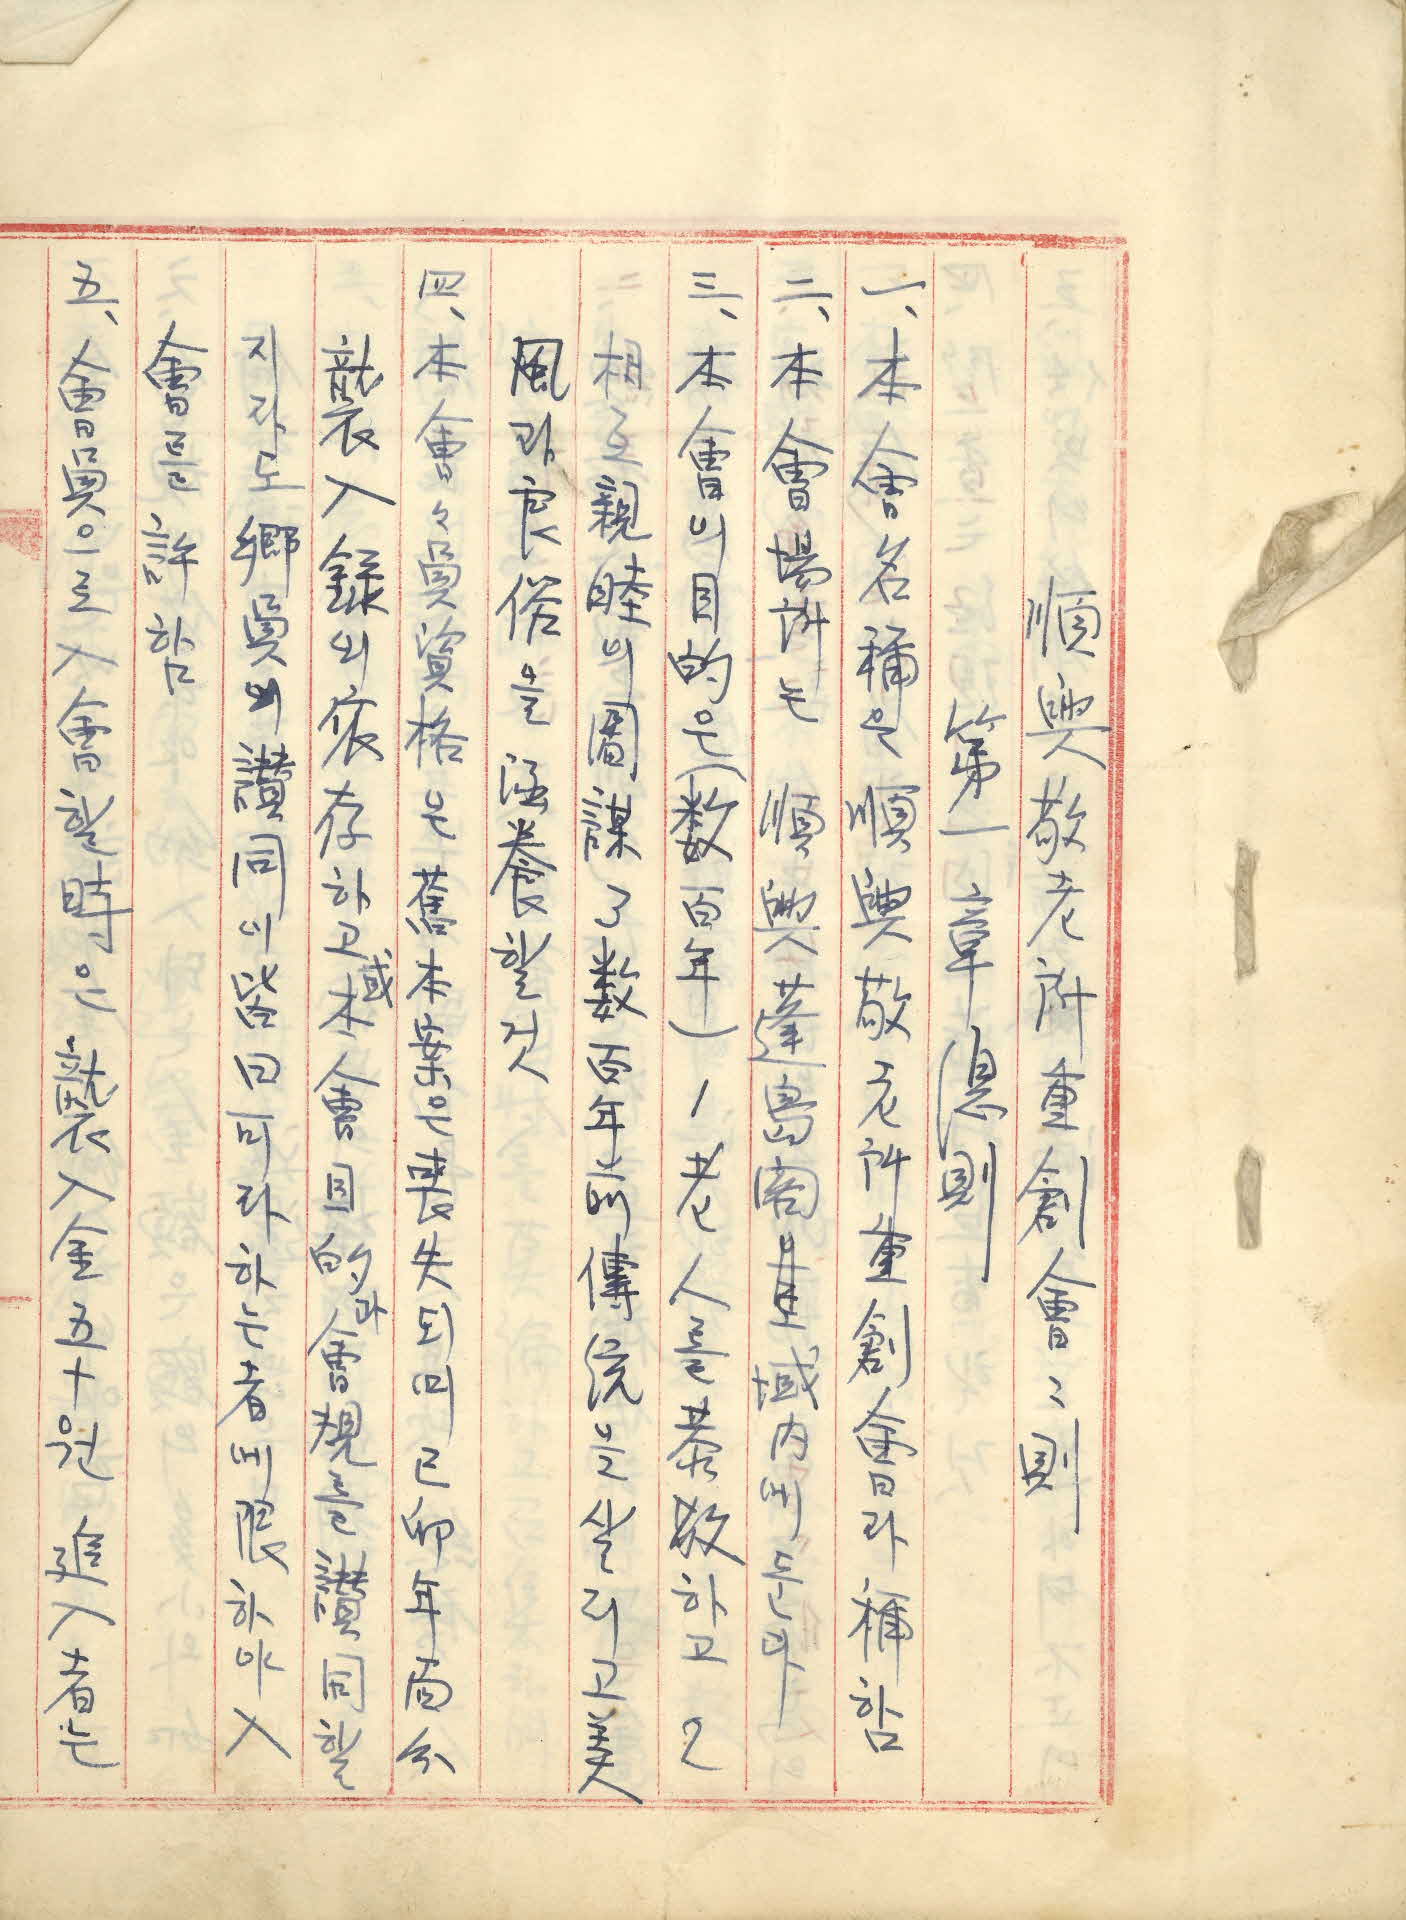 順興敬老所重創會〻則
第一章 總則
一、本會名稱은 順興敬老所重創會라稱함
二、本會場所는 順興蓬島閣基域內에둔다
三、本會의目的은(數百年) 1 老人을恭敬하고 2
相互親睦의圖謀 3 数百年前傳統을살리고美
風과良俗을涵養할것
四、本會々員資格는舊本案은喪失되며己卯年
襲入錄의 存하고或本會目的과會規를讚同할
지라도鄕員의讚同의 可라하는者에限하야入
會를許함
五、會員으로入會할時은襲入金五十원 進入者는